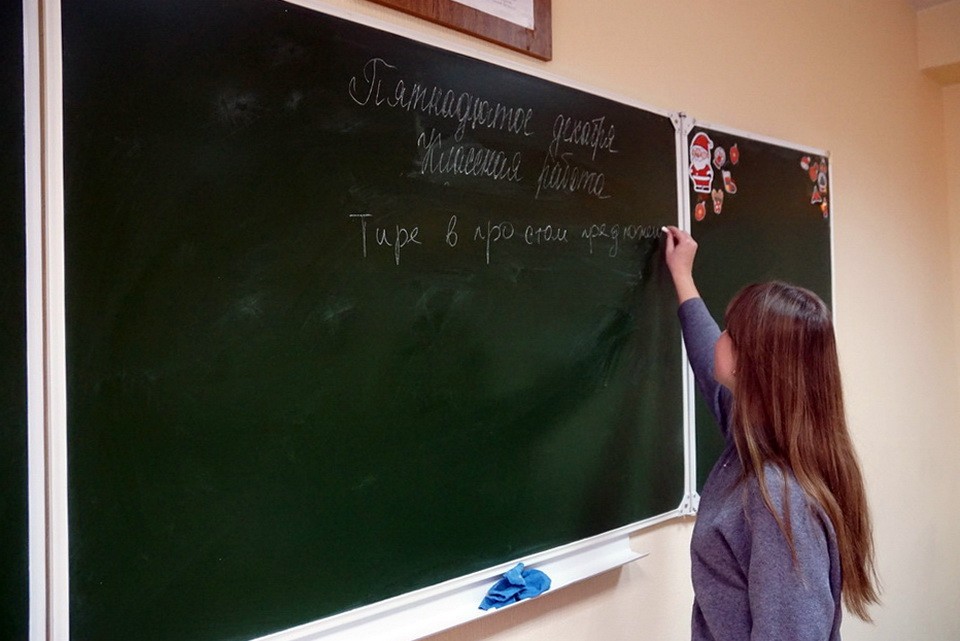 Пятнадцатое декабря
Классная работа
Тире в простом предложени